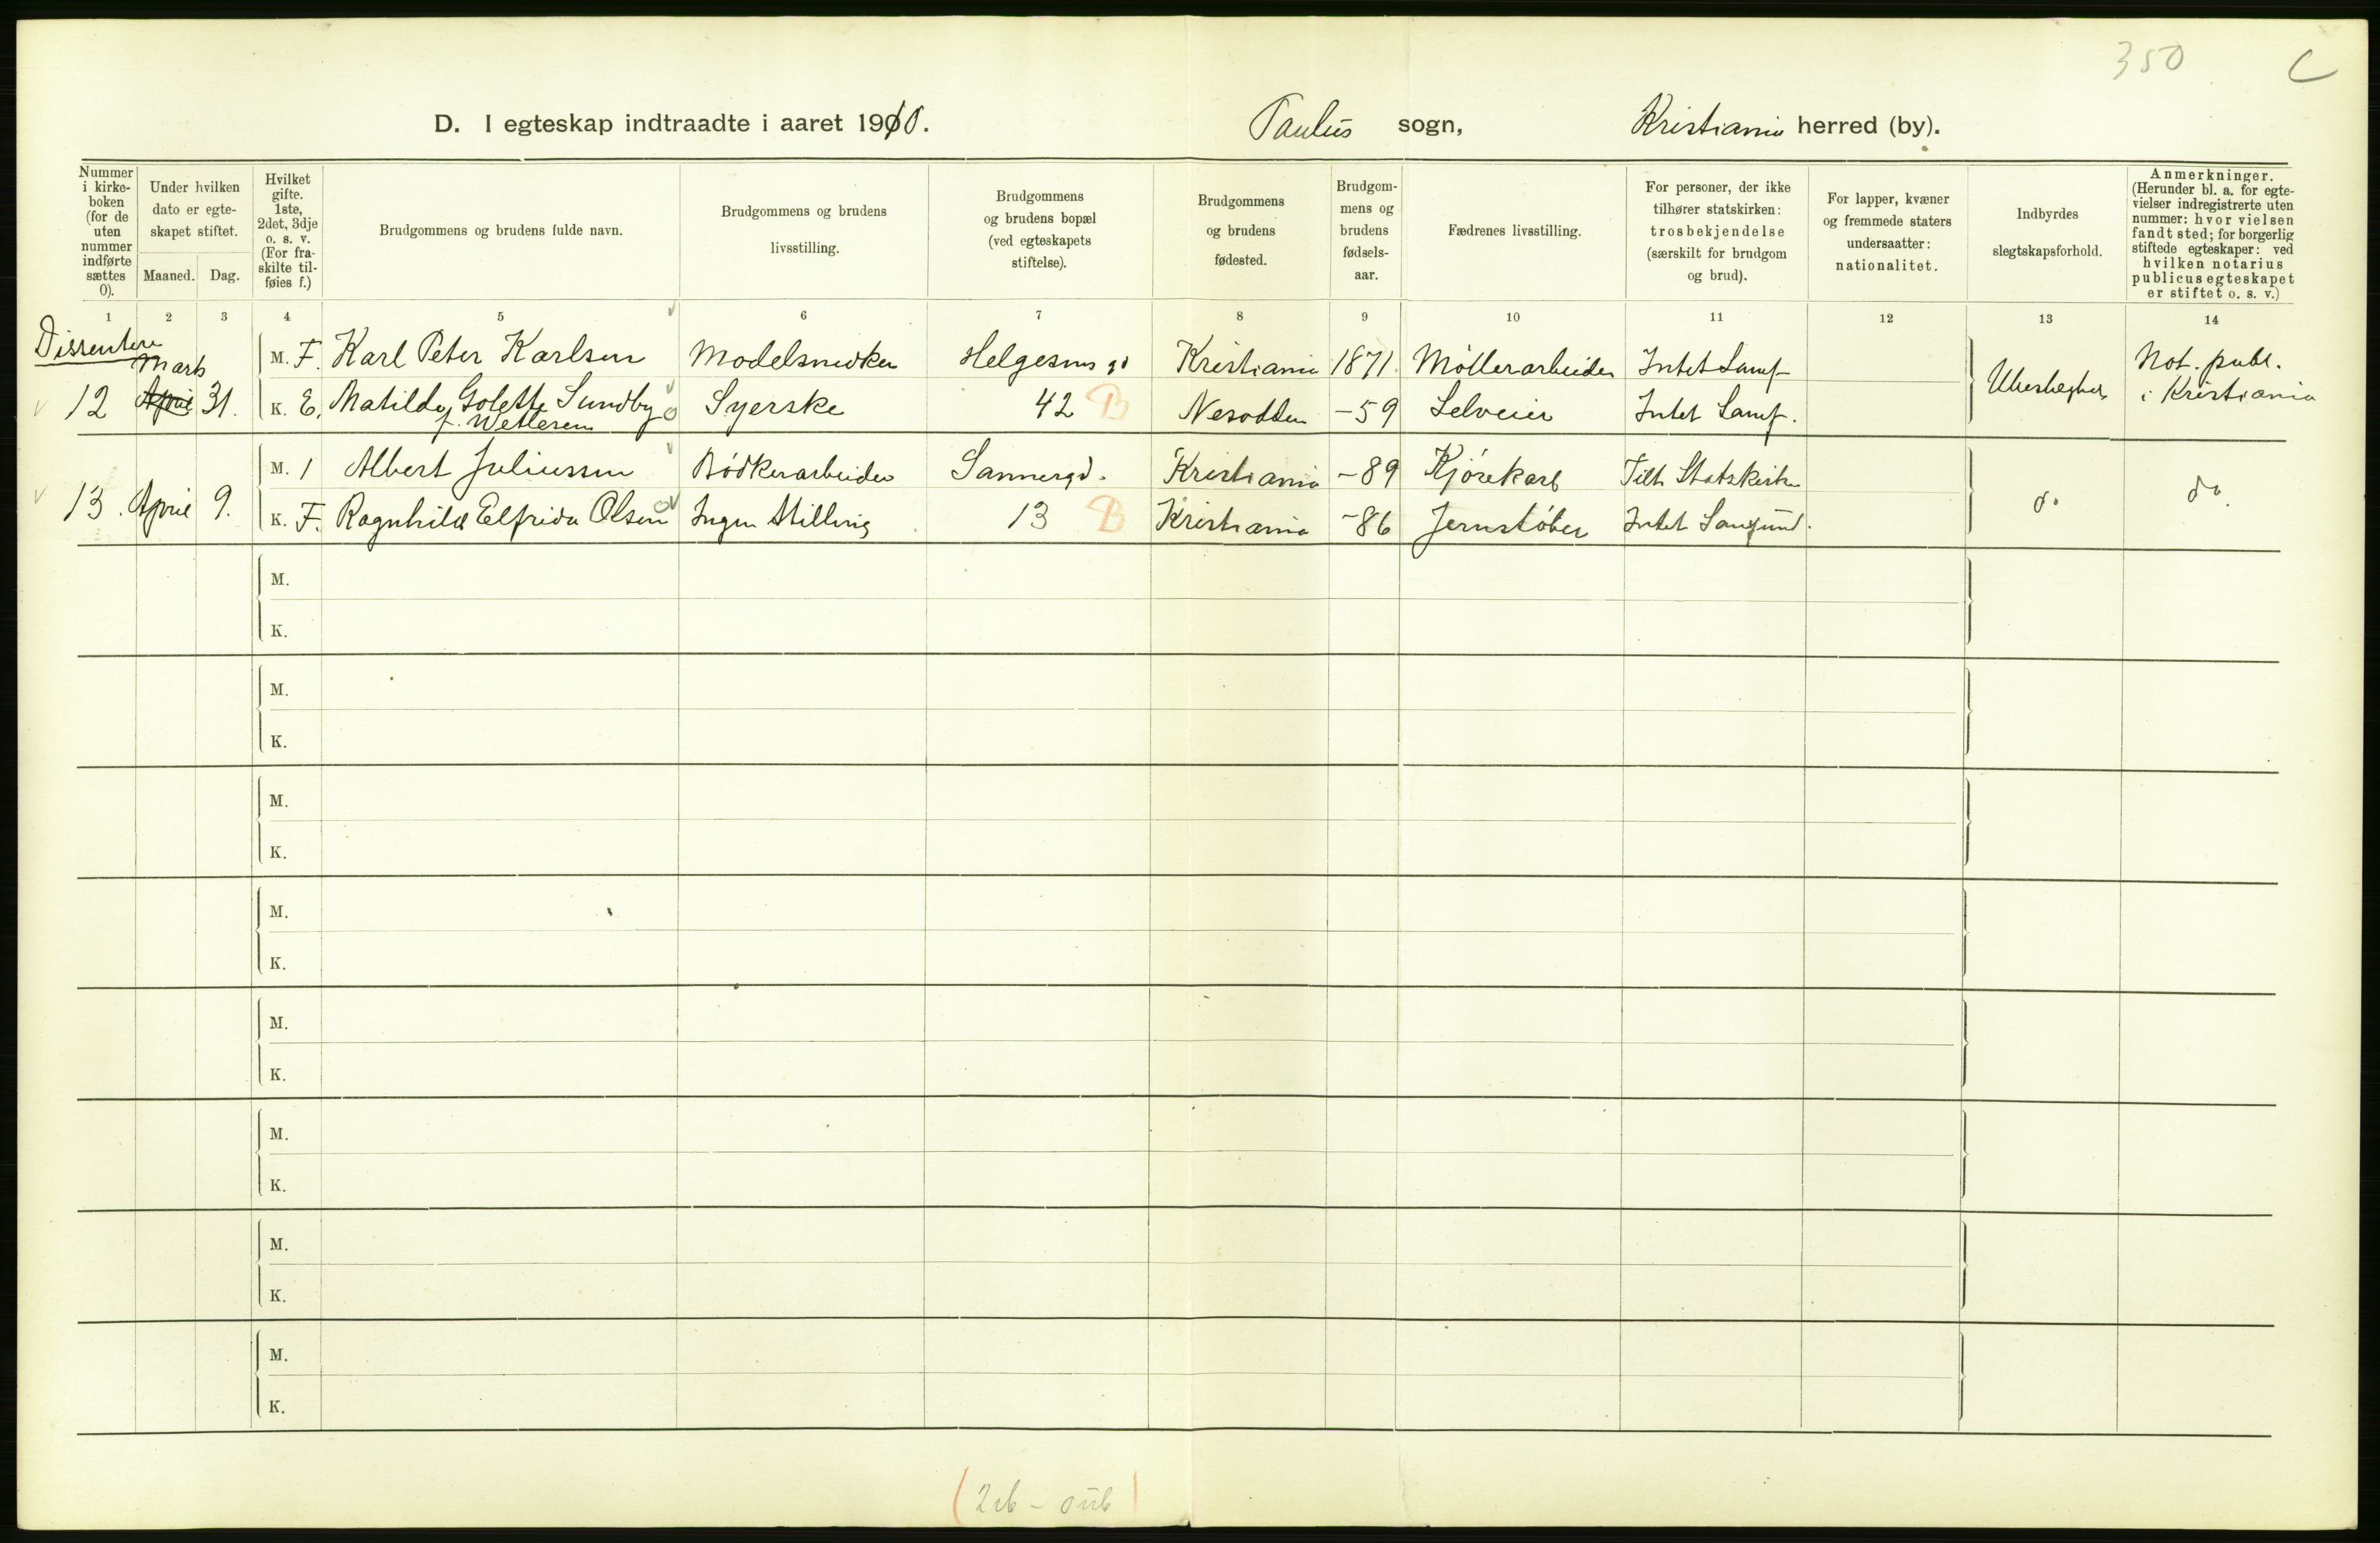 350 C
D. I egteskap indtraadte i aaret 1910. Paulus sogn, Kristiania herred (by).
Nummer i kirkeboken (for de uten nummer indførte sættes 0).
Under hvilken dato er egteskapet stiftet.
Maaned. Dag.
Hvilket gifte. 1ste, 2det, 3dje o. s. v. (For fraskilte tilføies f.)
Brudgommens og brudens fulde navn.
Brudgommens og brudens livsstilling.
Brudgommens og brudens bopæl (ved egteskapets stiftelse).
Brudgommens og brudens fødested.
Brudgommens og brudens fødselsaar.
Fædrenes livsstilling.
For personer, der ikke tilhører statskirken: trosbekjendelse (særskilt for brudgom og brud).
For lapper, kvæner og fremmede staters undersaatter: nationalitet.
Indbyrdes slegtskapsforhold.
Anmerkninger. (Herunder bl. a. for egtevielser indregistrerte uten nummer: hvor vielsen fandt sted; for borgerlig stiftede egteskaper: ved hvilken notarius publicus egteskapet er stiftet o. s. v.)
1 2 3 4 5 6 7 8 9 10 11 12 13 14
Dissentere
Marts
M. F. Karl Peter Karlsen Modelsnedker Helgesens gd Kristiania 1871. Møllerarbeider Intet Samf Not. publ.
12 April 31. K. E. Matilde Golette Sundby Syerske 42 B Nesodden -59 Selveier Intet Samf. Ubeslegtet i Kristiania
f. Wetlesen
M. 1 Albert Juliussen Bødkerarbeider Sannergd. Kristiania -89 Kjørekarl Tilh Statskirken
13. April 9. K. F. Ragnhild Elfrida Olsen Ingen Stilling 13 B Kristiania -86 Jernstøber Intet Samfund. do do.
M.
K.
M.
K.
M.
K.
M.
K.
M.
K.
M.
K.
M.
K.
M.
K.